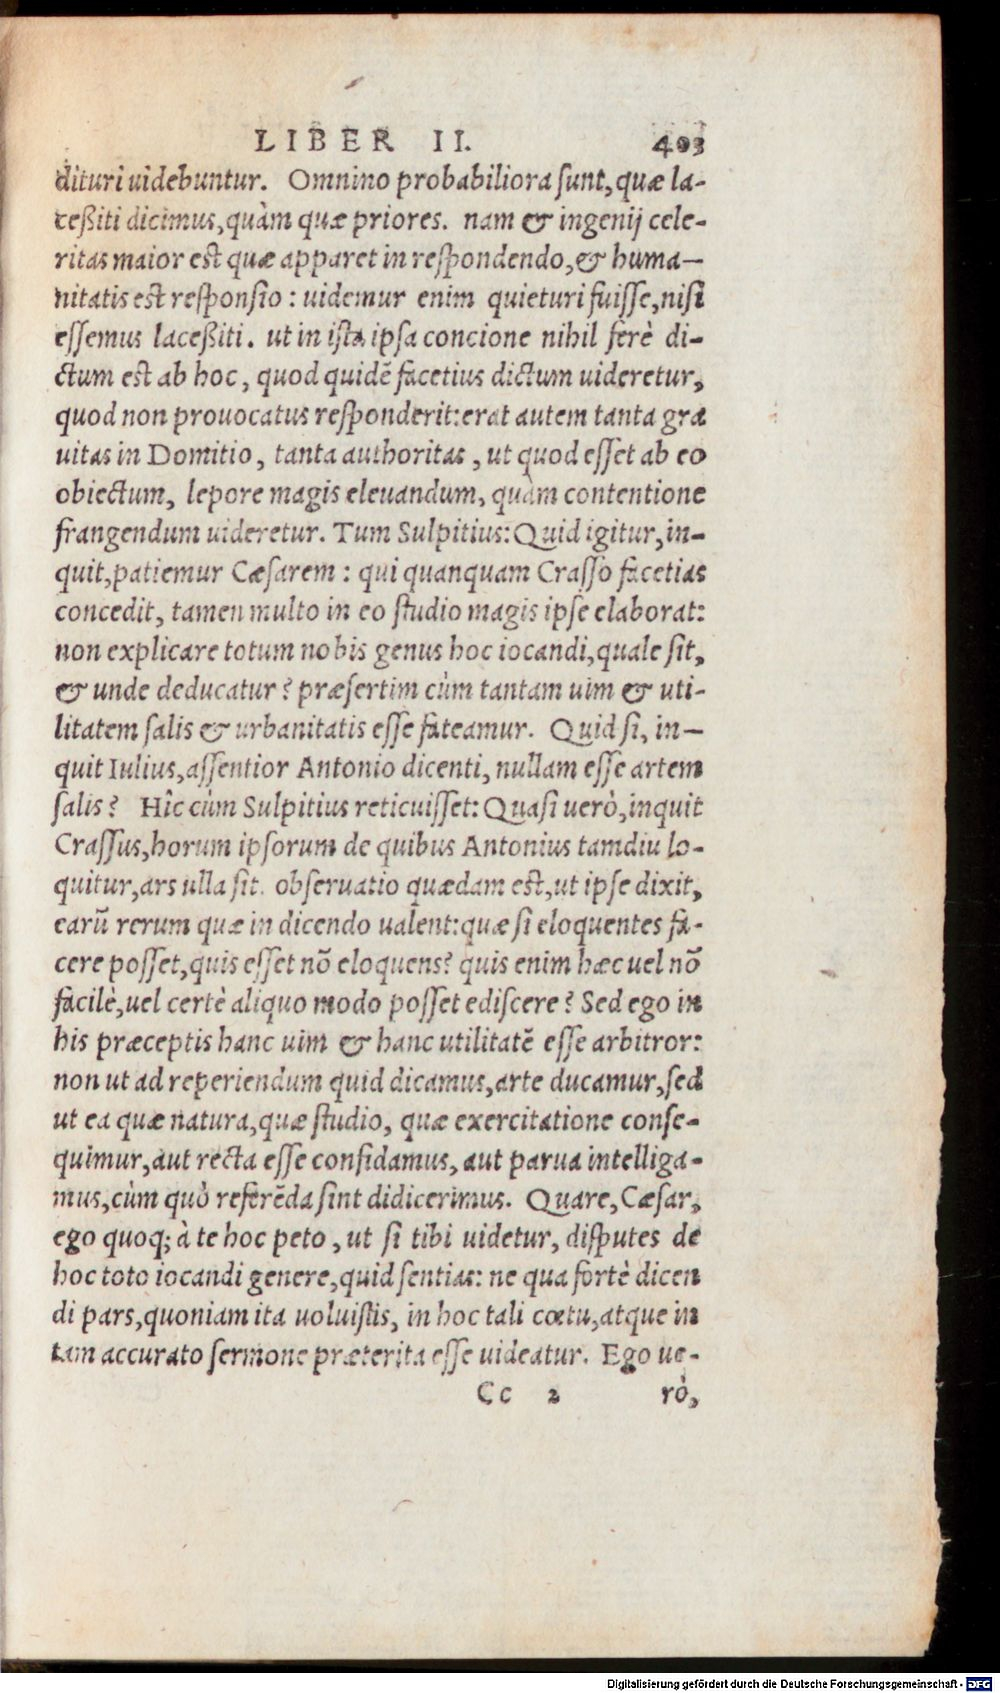 LIBER II. 403
dituri uidebuntur. Omnino probabiliora sunt, quæ la-
ceßiti dicimus, quàm quæ priores. nam & ingenij cele-
ritas maior est quæ apparet in respondendo, & huma—
nitatis est responsio: uidemur enim quieturi fuisse, nisi
essemus laceßiti. ut in ista ipsa concione nihil ferè di-
ctum est ab hoc, quod quidē facetius dictum uideretur,
quod non prouocatus responderit: erat autem tanta gra
uitas in Domitio, tanta authoritas, ut quod esset ab eo
obiectum, lepore magis eleuandum, quàm contentione
frangendum uideretur. Tum Sulpitius: Quid igitur, in-
quit, patiemur Cæsarem: qui quanquam Crasso facetias
concedit, tamen multo in eo studio magis ipse elaborat:
non explicare totum nobis genus hoc iocandi, quale sit,
& unde deducatur? præsertim cùm tantam uim & uti-
litatem salis & urbanitatis esse fateamur. Quid si, in—
quit Iulius, assentior Antonio dicenti, nullam esse artem
salis? Hîc cùm Sulpitius reticuisset: Quasi uerò, inquit
Crassus, horum ipsorum de quibus Antonius tamdiu lo-
quitur, ars ulla sit. obseruatio quædam est, ut ipse dixit,
earū rerum quæ in dicendo ualent: quæ si eloquentes fa-
cere posset, quis esset nō eloquens? quis enim hæc uel nō
facilè, uel certè aliquo modo posset ediscere? Sed ego in
his præceptis hanc uim & hanc utilitatē esse arbitror:
non ut ad reperiendum quid dicamus, arte ducamur, sed
ut ea quæ natura, quæ studio, quæ exercitatione conse-
quimur, aut recta esse confidamus, aut parua intelliga-
mus, cùm quò referēda sint didicerimus. Quare, Cæsar,
ego quoq; à te hoc peto, ut si tibi uidetur, disputes de
hoc toto iocandi genere, quid sentias: ne qua fortè dicen
di pars, quoniam ita uoluistis, in hoc tali cœtu, atque in
tam accurato sermone præterita esse uideatur. Ego ue-
Cc 2 rò,
Digitalisierung gefördert durch die Deutsche Forschungsgemeinschaft - DFG